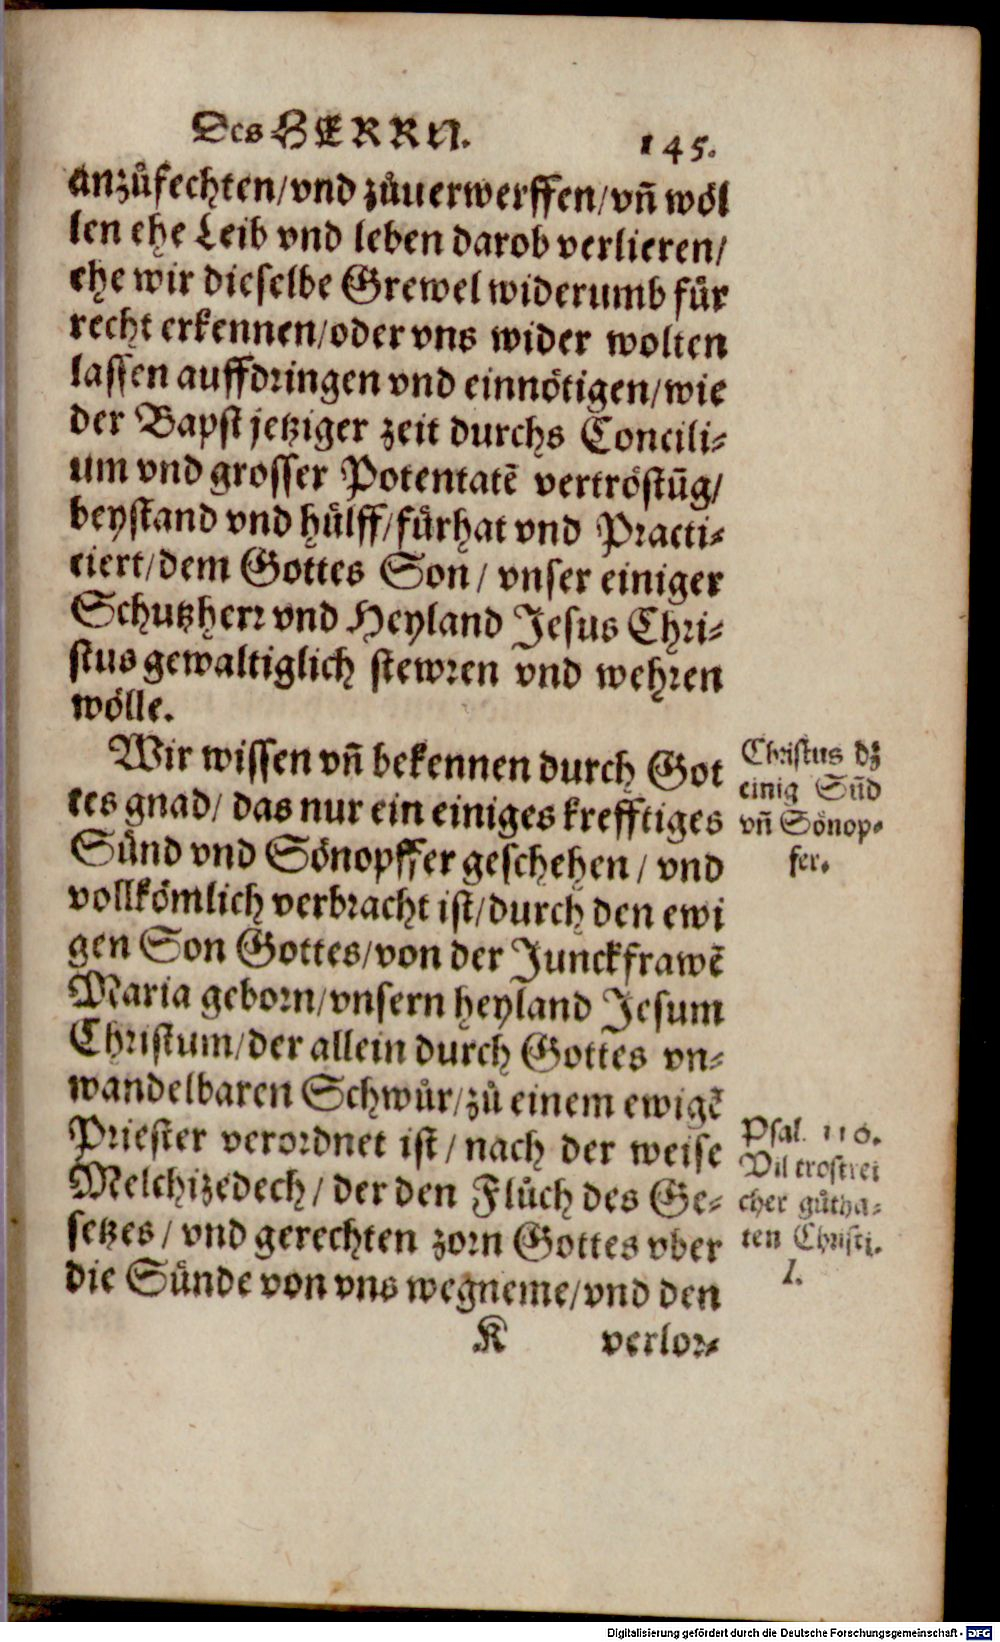 Des HERRN.
145.
anzůfechten/vnd zůuerwerffen/vñ wöl
len ehe Leib vnd leben darob verlieren/
ehe wir dieselbe Grewel widerumb für
recht erkennen/oder vns wider wolten
lassen auffdringen vnd einnötigen/wie
der Bapst jetziger zeit durchs Concili-
um vnd grosser Potentatē vertröstūg/
beystand vnd hülff/fürhat vnd Practi-
ciert/dem Gottes Son/ vnser einiger
Schutzherr vnd Heyland Jesus Chri-
stus gewaltiglich stewren vnd wehren
wölle.
Wir wissen vñ bekennen durch Got
tes gnad/ das nur ein einiges krefftiges
Sünd vnd Sönopffer geschehen/ vnd
vollkömlich verbracht ist/durch den ewi
gen Son Gottes/von der Junckfrawē
Maria geborn/vnsern heyland Jesum
Christum/der allein durch Gottes vn-
wandelbaren Schwůr/zů einem ewigē
Priester verordnet ist/ nach der weise
Melchizedech/ der den Flůch des Ge-
setzes/ vnd gerechten zorn Gottes vber
die Sünde von vns wegneme/vnd den
K verlor-
Christus dz
einig Sūd
vñ Sönop-
fer.
Psal. 110.
Vil trostrei
cher gůtha-
ten Christi.
1.
Digitalisierung gefördert durch die Deutsche Forschungsgemeinschaft - DFG